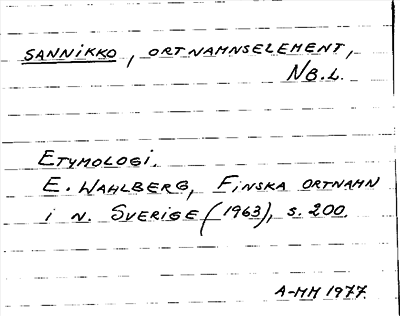 SANNIKKO, ORTNAMNSELEMENT,
NB.L.
ETYMOLOGI.
E. WAHLBERG, FINSKA ORTNAMN
I N. SVERIGE (1963), S. 200.
A-MM 1977.